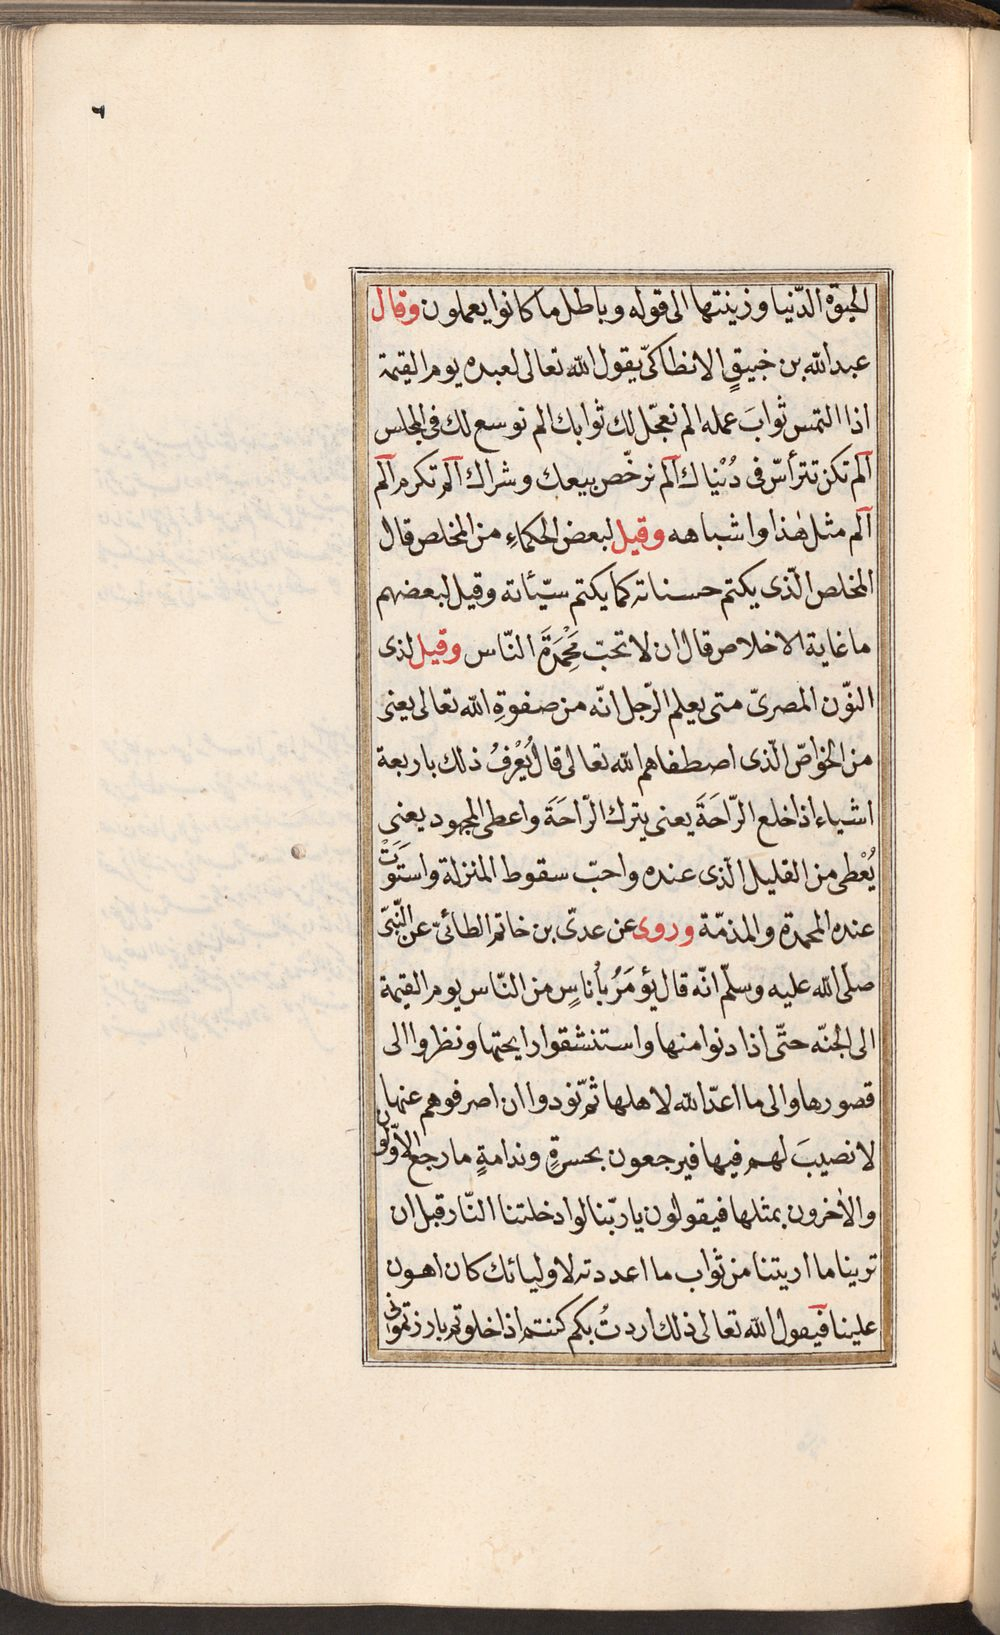 ٦
الحيوة الدّنيا وزينتها الى قوله وباطل ما كانوا يعملون وقال
عبد الله بن خبيقٍ الانطاكىّ يقول الله تعالى لعبده يوم القيمة
اذا التمس ثوابَ عمله الم نعجّل لك ثوابك الم نوسع لك فى المجلس
آلم تكن تترأسّ فى دُنْياك آلم نرخّص بيعك وشراك آلم تكرم آلم
آلم مثل هٰذا واشباهه وقيل لبعض الحكماءِ من المخلص قال
المخلص الّذى يكتم حسناته كما يكتم سيّئاته وقيل لبعضهم
ما غاية الاخلاص قال ان لا تحبّ مَحْمِدَةَ النّاس وقيل لذى
النّون المصرىّ متى يعلم الرّجل انّه من صفوةِ الله تعالى يعنى
من الخواصّ الّذى اصطفاهم الله تعالى قال يُعْرفُ ذلك باربعة
اشياء اذا خلع الرّاحَةَ يعنى يترك الرّاحَةَ واعطى المجهود يعنى
يُعْطى من القليل الّذى عنده واحبّ سقوط المنزلة واستَوَتْ
عنده المحمدة والمذمّة وروى عن عدىّ بن خاتم الطائىّ عن النّبىّ
صلّى الله عليه وسلّم انّه قال يؤمَرُ بأناسٍ من النّاس يوم القيمة
الى الجنّه حتّى اذا دنوا منها واستنشقوا رايحتها ونظروا الى
قصورها والى ما اعدّ الله لاهلها ثمّ نّودوا ان اصرفوهم عنها
لا نصيبَ لهم فيها فيرجعون بحسرةٍ وندامةٍ ما رجع الاوّلون
والأخرون بمثلها فيقولون ياربّنا لوادخلتنا النّار قبل ان
ترينا ما اريتنا من ثواب ما اعددته لاوليائك كان اهون
علينا فيقول الله تعالى ذلك اردتُ بكم كنتم اذا خلوتم بارزتمونى